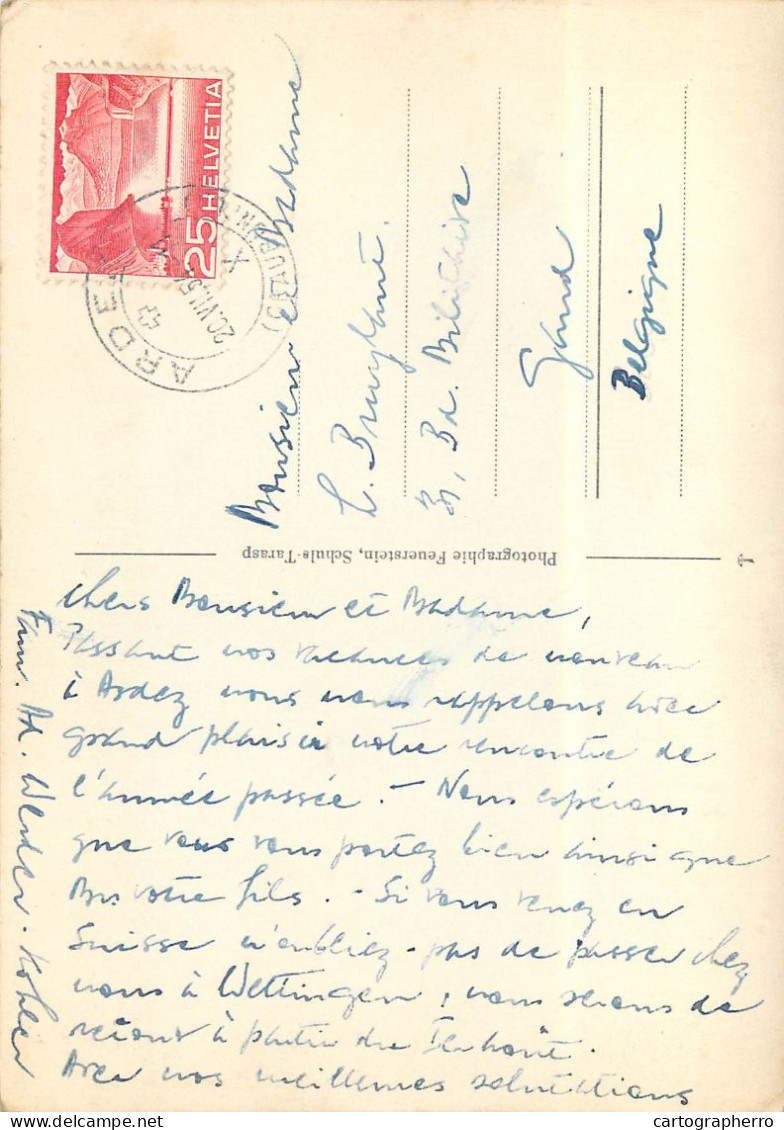 HELVETIA
25
ARDEZ
20.VII.5
Monsieur et Madame
L. Bruylant.
31, Bd. Britannique
Gand
Belgique
Photographie Feuerstein, Schuls-Tarasp
Chers Monsieur et Madame,
Passant nos vacances de nouveau
à Ardez nous nous rappelons avec
grand plaisir votre rencontre de
l'année passée. – Nous espérons
que vous vous portez bien ainsi que
Mrs votre fils. – Si vous venez en
Suisse n'oubliez-pas de passer chez
nous à Wettingen, nous serons de
retour à partir du 1er août.
Avec nos meilleures salutations
Fam. Ad. Werder-Kohler
cartographerro